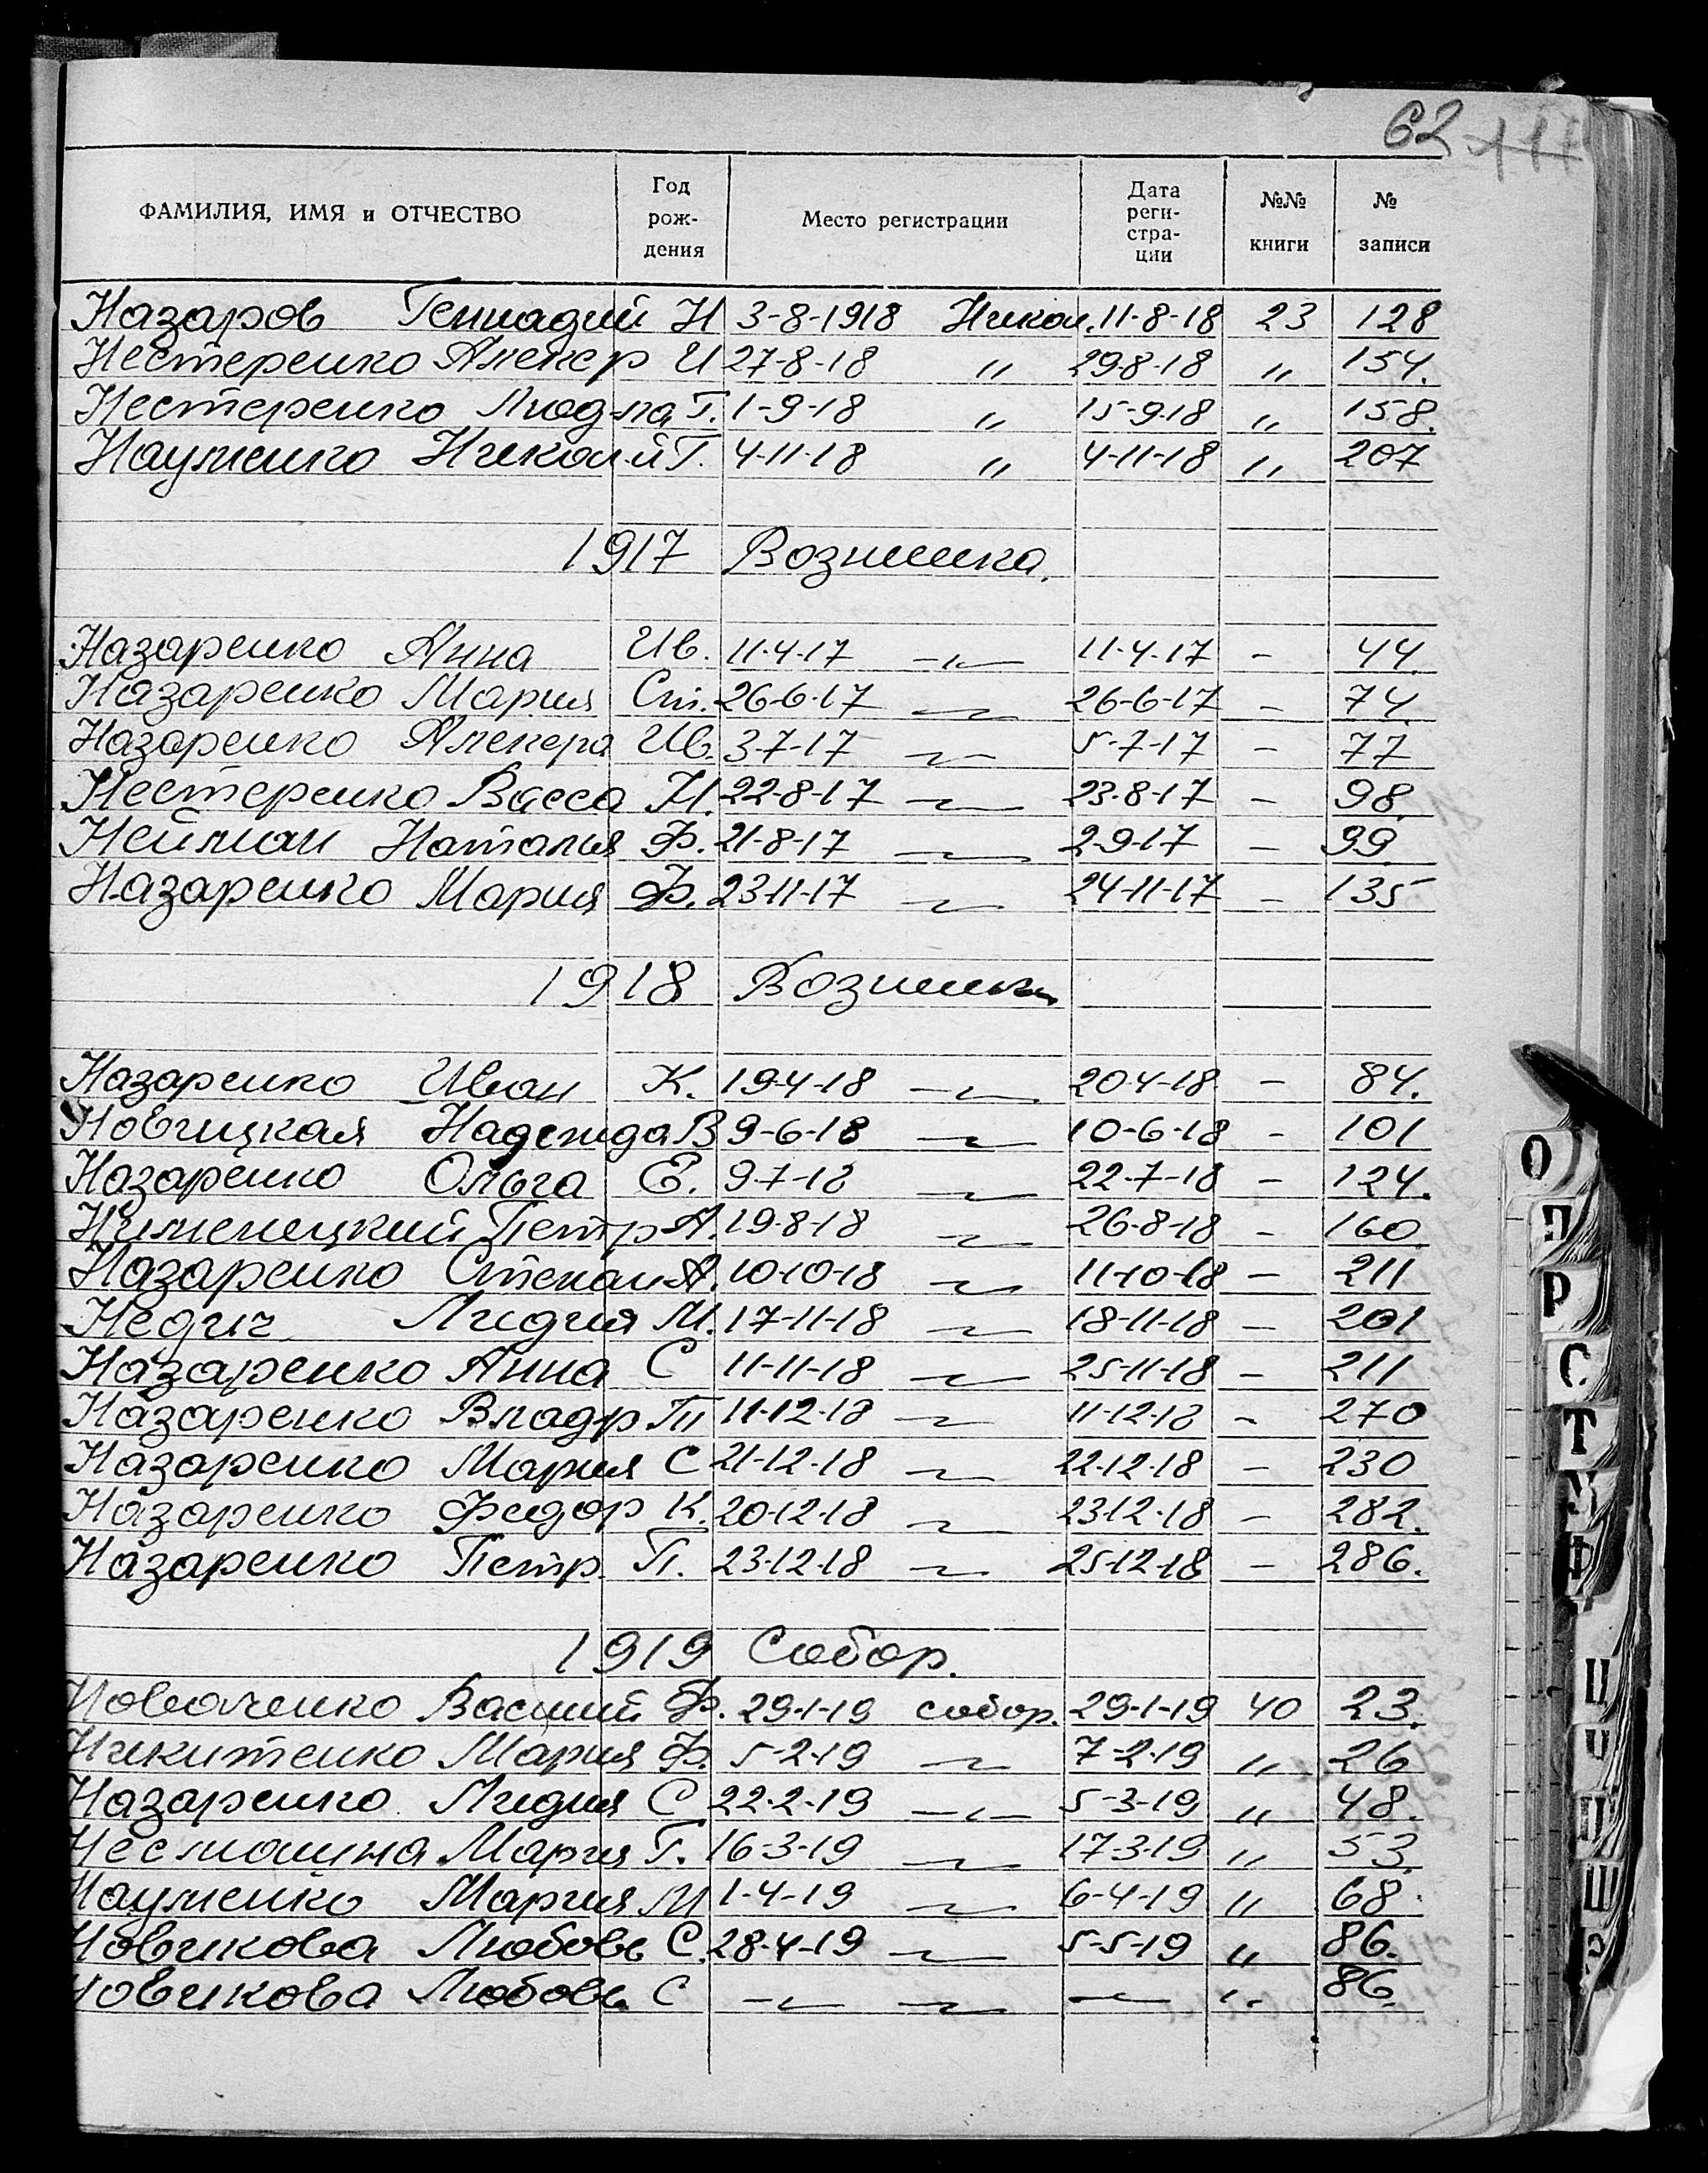 62
ФАМИЛИЯ, ИМЯ и ОТЧЕСТВО Год рождения Место регистрации Дата регистрации №№ книги № записи
Назаров Геннадий Н 3-8-1918 Никол. 11-8-18 23 128
Нестеренко Алекср И 27-8-18 " 29-8-18 " 154.
Нестеренко Люд-ла Г. 1-9-18 " 15-9-18 " 158.
Науменко Никол-й Г. 4-11-18 " 4-11-18 " 207
1917 Вознишка.
Назаренко Анна Ив. 11-4-17 -"- 11-4-17 - 44.
Назаренко Мария Ст. 26-6-17 -"- 26-6-17 - 74.
Назаренко Алексра Ив. 3-7-17 -"- 5-7-17 - 77
Нестеренко Васса Н. 22-8-17 -"- 23-8-17 - 98.
Нейман Наталья Ф. 21-8-17 -"- 2-9-17 - 99.
Назаренко Мария Ф. 23-11-17 -"- 24-11-17 - 135
1918
Назаренко Иван К. 19-4-18 -"- 20-4-18 - 84.
Новицкая Надежда В 9-6-18 -"- 10-6-18 - 101
Назаренко Ольга Е. 9-7-18 -"- 22-7-18 - 124.
Петр А. 19-8-18 -"- 26-8-18 - 160.
Назаренко Степан А. 10-10-18 -"- 11-10-18 - 211
Недич Лидия М. 17-11-18 -"- 18-11-18 - 201
Назаренко Анна С 11-11-18 -"- 25-11-18 - 211
Назаренко Владр П 11-12-18 -"- 11-12-18 - 270
Назаренко Мария С 21-12-18 -"- 22-12-18 - 230
Назаренко Федор К. 20-12-18 -"- 23-12-18 - 282.
Назаренко Петр. П. 23-12-18 -"- 25-12-18 - 286.
1919 Собор.
Василий Ф. 29-1-19 собор. 29-1-19 40 23.
Никитенко Мария Ф. 5-2-19 -"- 7-2-19 " 26
Назаренко Лидия С 22-2-19 -"- 5-3-19 " 48.
Мария Г. 16-3-19 -"- 17-3-19 " 53.
Науменко Мария М 1-4-19 -"- 6-4-19 " 68.
Новикова Любовь С. 28-4-19 -"- 5-5-19 " 86.
Новикова Любовь С -"- -"- -"- " 86.
О
П
Р
С
Т
У
Ф
Ц
Ч
Ш